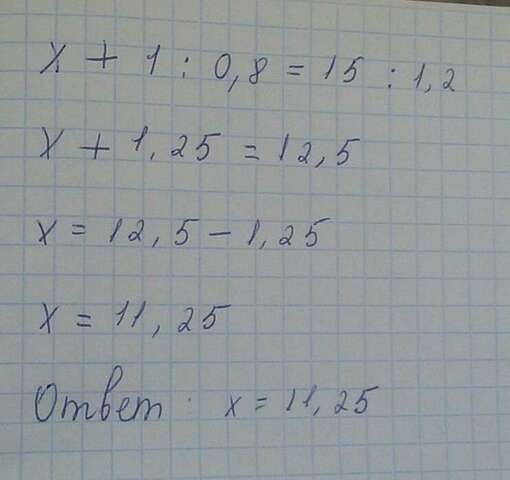 x + 1 : 0,8 = 15 : 1,2
x + 1,25 = 12,5
x = 12,5 - 1,25
x = 11,25
Ответ: x = 11,25